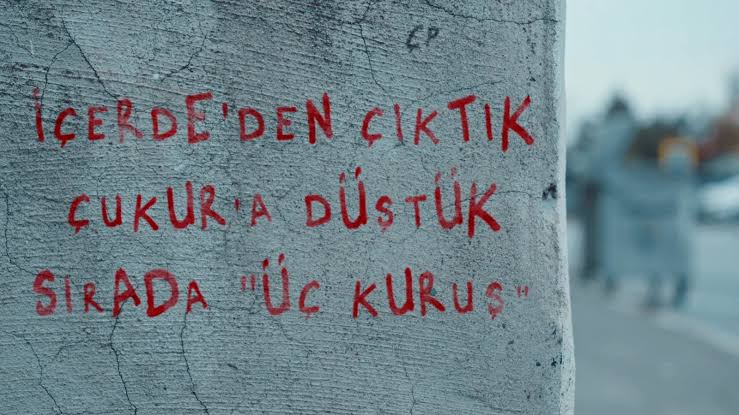 ÇP
İÇERDE'DEN ÇIKTIK
ÇUKUR'A DÜŞTÜK
SIRADA "ÜÇ KURUŞ"